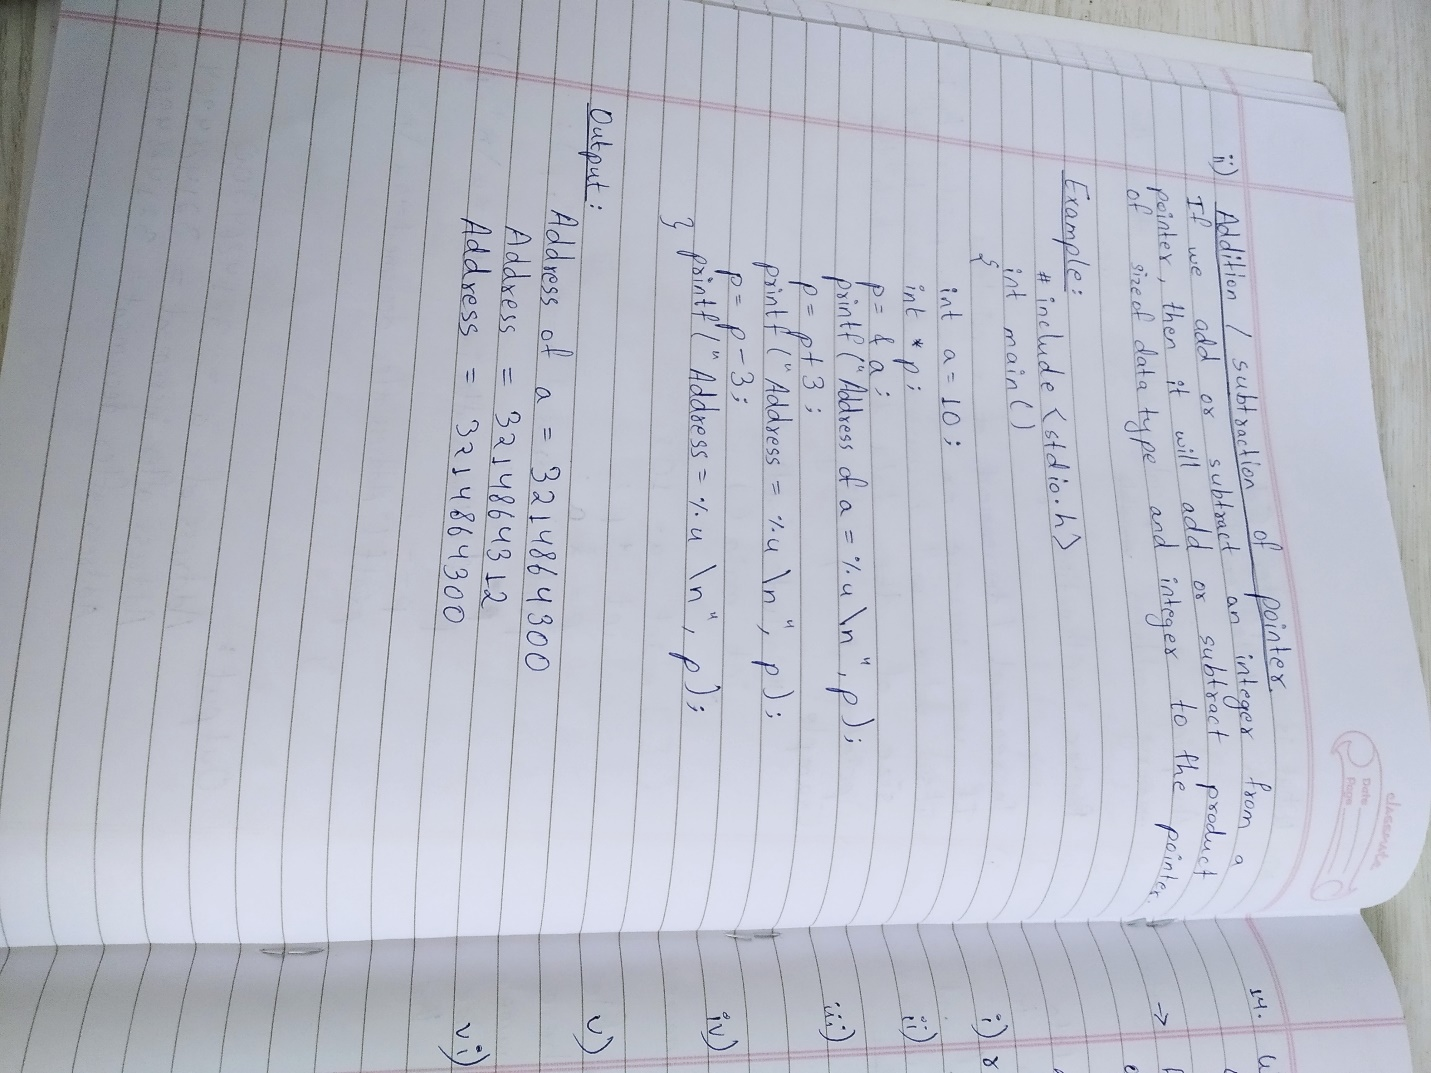 classmate
Date
Page
ii) Addition / subtraction of pointer.
If we add or subtract an integer from a
pointer, then it will add or subtract product
of sizeof data type and integer to the pointer.
Example:
# include <stdio.h>
int main()
{
int a = 10;
int *p;
p = & a;
printf ("Address of a = %u \n", p);
p = p+3;
printf ("Address = %u \n", p);
p = p-3;
printf ("Address = %u \n", p);
}
Output:
Address of a = 3214864300
Address = 3214864312
Address = 3214864300
14.
→
i)
ii)
iii)
iv)
v)
vi)